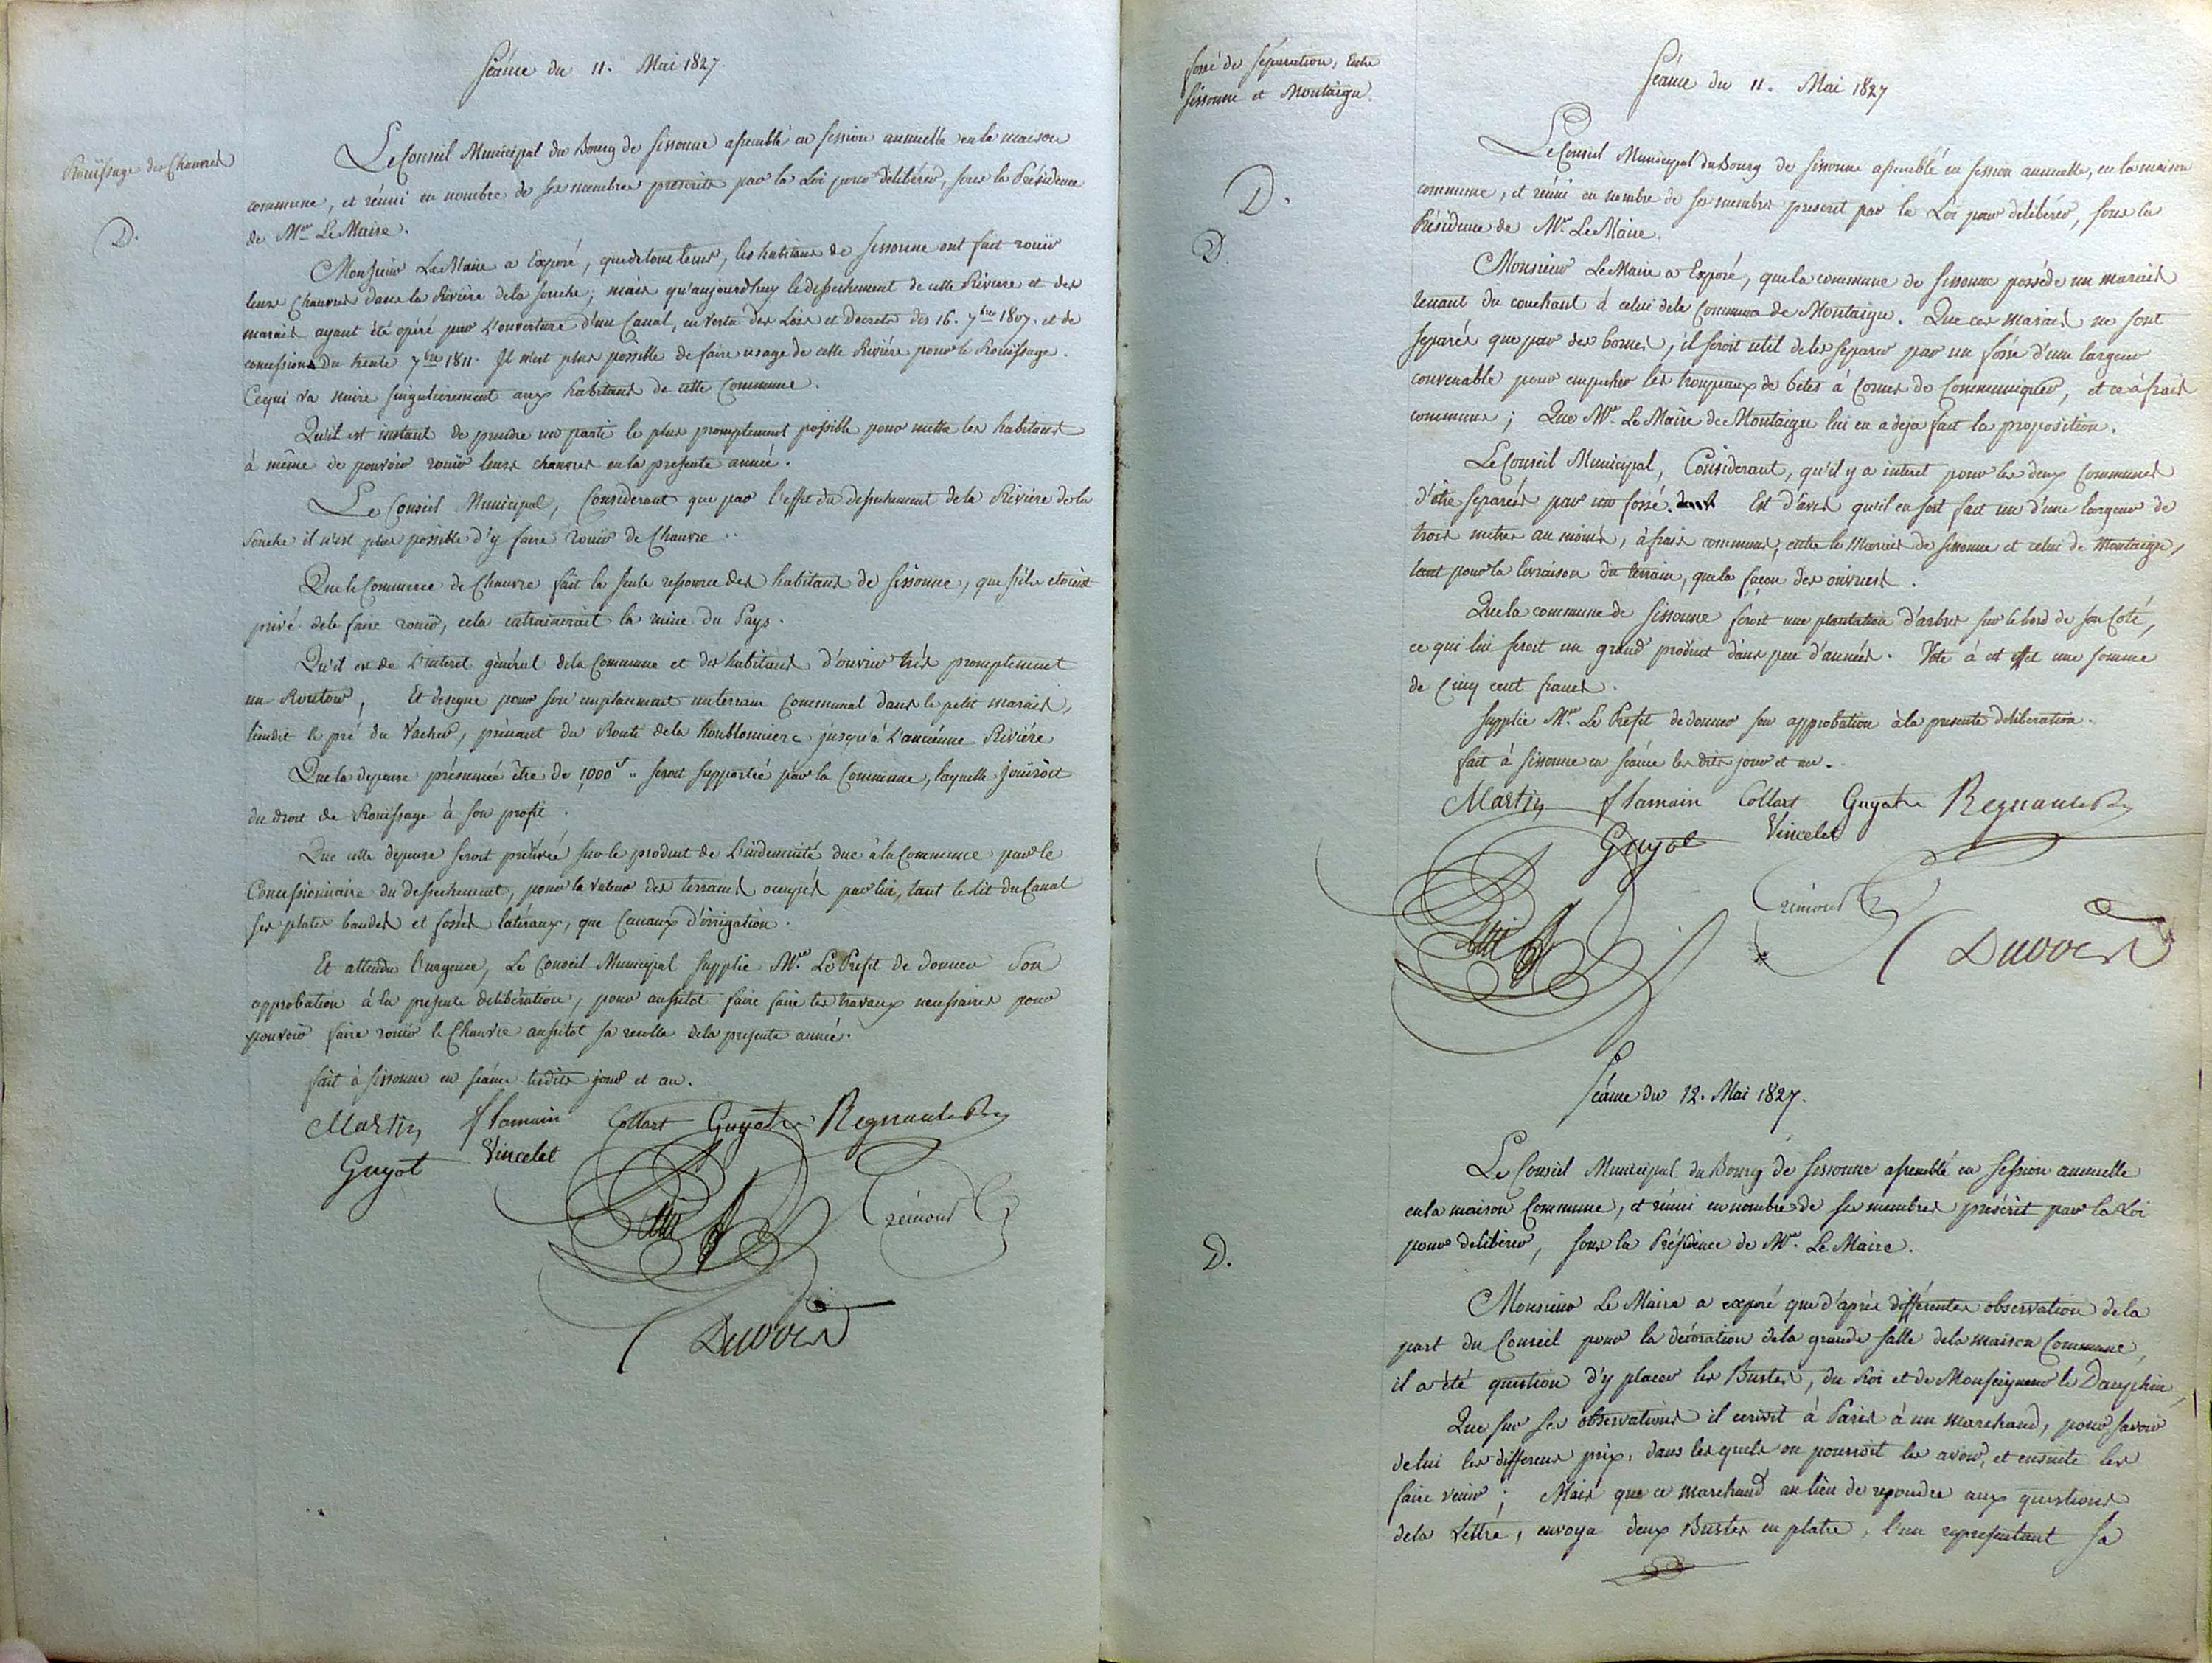 Séance du 11. Mai 1827.
Rouissage des Chanvres
D.
Le Conseil Municipal du Bourg de Sissonne assemblé en session annuelle en la maison
commune, et réuni en nombre de ses membres prescrits par la Loi pour délibérer, sous la Présidence
de Mr. Le Maire.
Monsieur Le Maire a Exposé, que de tous tems, les habitans de Sissonne ont fait rouir
leurs Chanvres dans la Rivière de la Souche; mais qu'aujourd'huy le dessechement de cette Riviere et des
marais ayant été opéré par l'ouverture d'un Canal, en vertu des Lois et Decrets des 16. 7bre 1807. et de
concession du trente 7bre 1811. Il n'est plus possible de faire usage de cette Riviére pour le Rouissage.
Ce qui va nuire singulierement aux habitans de cette Commune.
Qu'il est instant de prendre un parti le plus promptement possible pour mettre les habitans
à même de pouvoir rouir leurs chanvres en la presente année.
Le Conseil Municipal, Considerant que par l'effet du dessechement de la Riviere de la
Souche il n'est plus possible d'y faire rouir de Chanvre.
Que le Commerce de Chanvre fait la seule ressource des habitans de Sissonne, que s'ils etoient
privé de le faire rouir, cela entrainerait la ruine du Pays.
Qu'il est de l'interet général de la Commune et des habitans d'ouvrir très promptement
un Routoir, Et designe pour son emplacement un terrain Communal dans le petit marais,
lieudit le pré du Vacher, prenant du Routi de la houblonniere jusqu'à l'ancienne Riviére
Que la depense présumée être de 1,000f " seroit supportée par la Commune, laquelle jouiroit
du droit de Rouissage à son profit.
Que cette depense seroit prélévée sur le produit de l'indemnité due à la Commune par le
Concessionnaire du dessechement, pour la valeur des terrains occupés par lui, tant le lit du Canal
ses plates bandes et fossés latéraux, que Canaux d'irrigation.
Et attendu l'urgence, Le Conseil Municipal supplie Mr. Le Prefet de donner son
approbation à la presente deliberation, pour aussitot faire faire les travaux necessaires pour
pouvoir faire rouir le Chanvre aussitot sa recolte de la presente année.
fait à Sissonne en séance lesdits jour et an.
Martin Lamain Collart Guyot Regnault
Guyot Vincelet
Crémont
Duvoir
fossé de séparation, Entre
Sissonne et Montaigu.
Séance du 11. Mai 1827
D.
D.
Le Conseil Municipal du Bourg de Sissonne assemblé en session annuelle, en la maison
commune, et réuni en nombre de ses membres prescrit par la Loi pour délibérer, sous la
Présidence de Mr. Le Maire.
Monsieur Le Maire a Exposé, que la commune de Sissonne posséde un marais
tenant du couchant à celui de la Commune de Montaigu. Que ces marais ne sont
separés que par des bornes, il seroit util de les separer par un fossé d'une largeur
convenable pour empecher les troupeaux de bêtes à Cornes de Communiquer, et ce à frais
communs; Que Mr. Le Maire de Montaigu lui en a deja fait la proposition.
Le Conseil Municipal, Considerant, qu'il y a interet pour les deux Communes
d'être separées par un fossé. Est d'avis qu'il en soit fait un d'une largeur de
trois metres au moins, à frais communs, entre le Marais de Sissonne et celui de Montaigu,
tant pour la livraison du terrain, que la façon des ouvriers.
Que la commune de Sissonne feroit une plantation d'arbres sur le bord de son Coté,
ce qui lui feroit un grand produit dans peu d'années. Vote à cet effet une somme
de Cinq cent francs.
Supplie Mr. Le Prefet de donner son approbation à la presente deliberation.
fait à Sissonne en séance les dits jour et an.
Martin Lamain Collart Guyot Regnault
Guyot Vincelet
Crémont
Duvoir
Séance du 12. Mai 1827.
D.
Le Conseil Municipal du Bourg de Sissonne assemblé en Session annuelle
en la maison Commune, et réuni en nombre de ses membres préscrit par la Loi
pour deliberer, sous la Présidence de Mr. Le Maire.
Monsieur Le Maire a exposé que d'après différentes observation de la
part du Conseil pour la décoration de la grande salle de la maison Commune,
il a été question d'y placer les Bustes, du Roi et de Monseigneur le Dauphin,
Que sur ses observations il ecrivit à Paris à un marchand, pour savoir
de lui les differens prix, dans lesquels on pourroit les avoir, et ensuite les
faire venir; Mais que ce marchand au lieu de repondre aux questions
de la Lettre, envoya deux Bustes en platre, l'un representant Sa